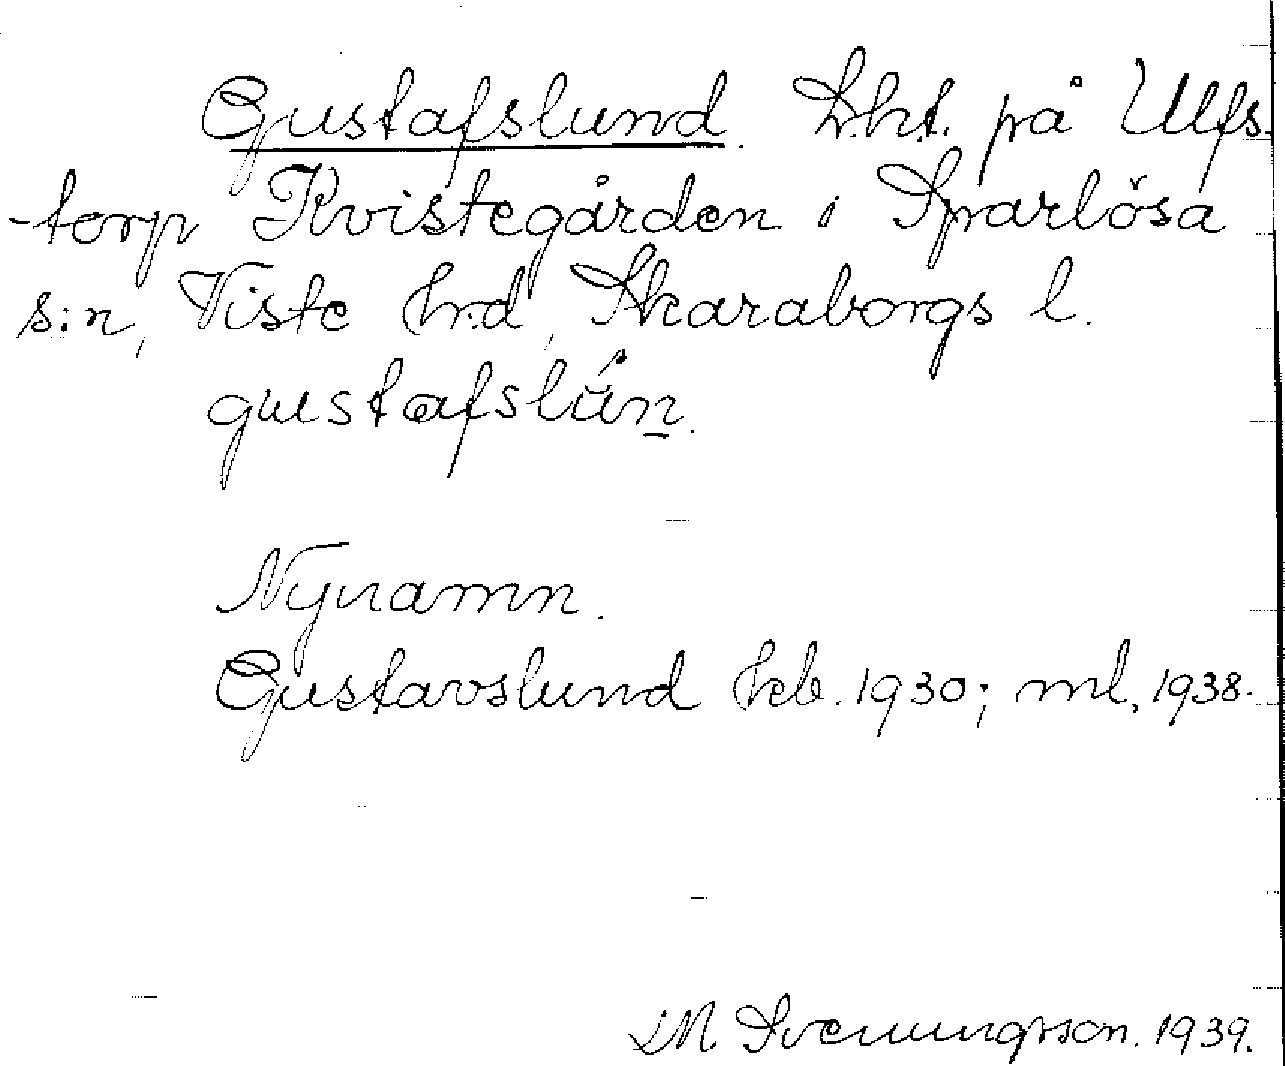 Gustafslund. Lht. på Ulfs-
torp Kvistegården i Sparlösa
s:n, Viste hrd, Skaraborgs l.
gustafslún.
Nynamn.
Gustavslund kb. 1930; ml. 1938.
M. Svenungsson. 1939.